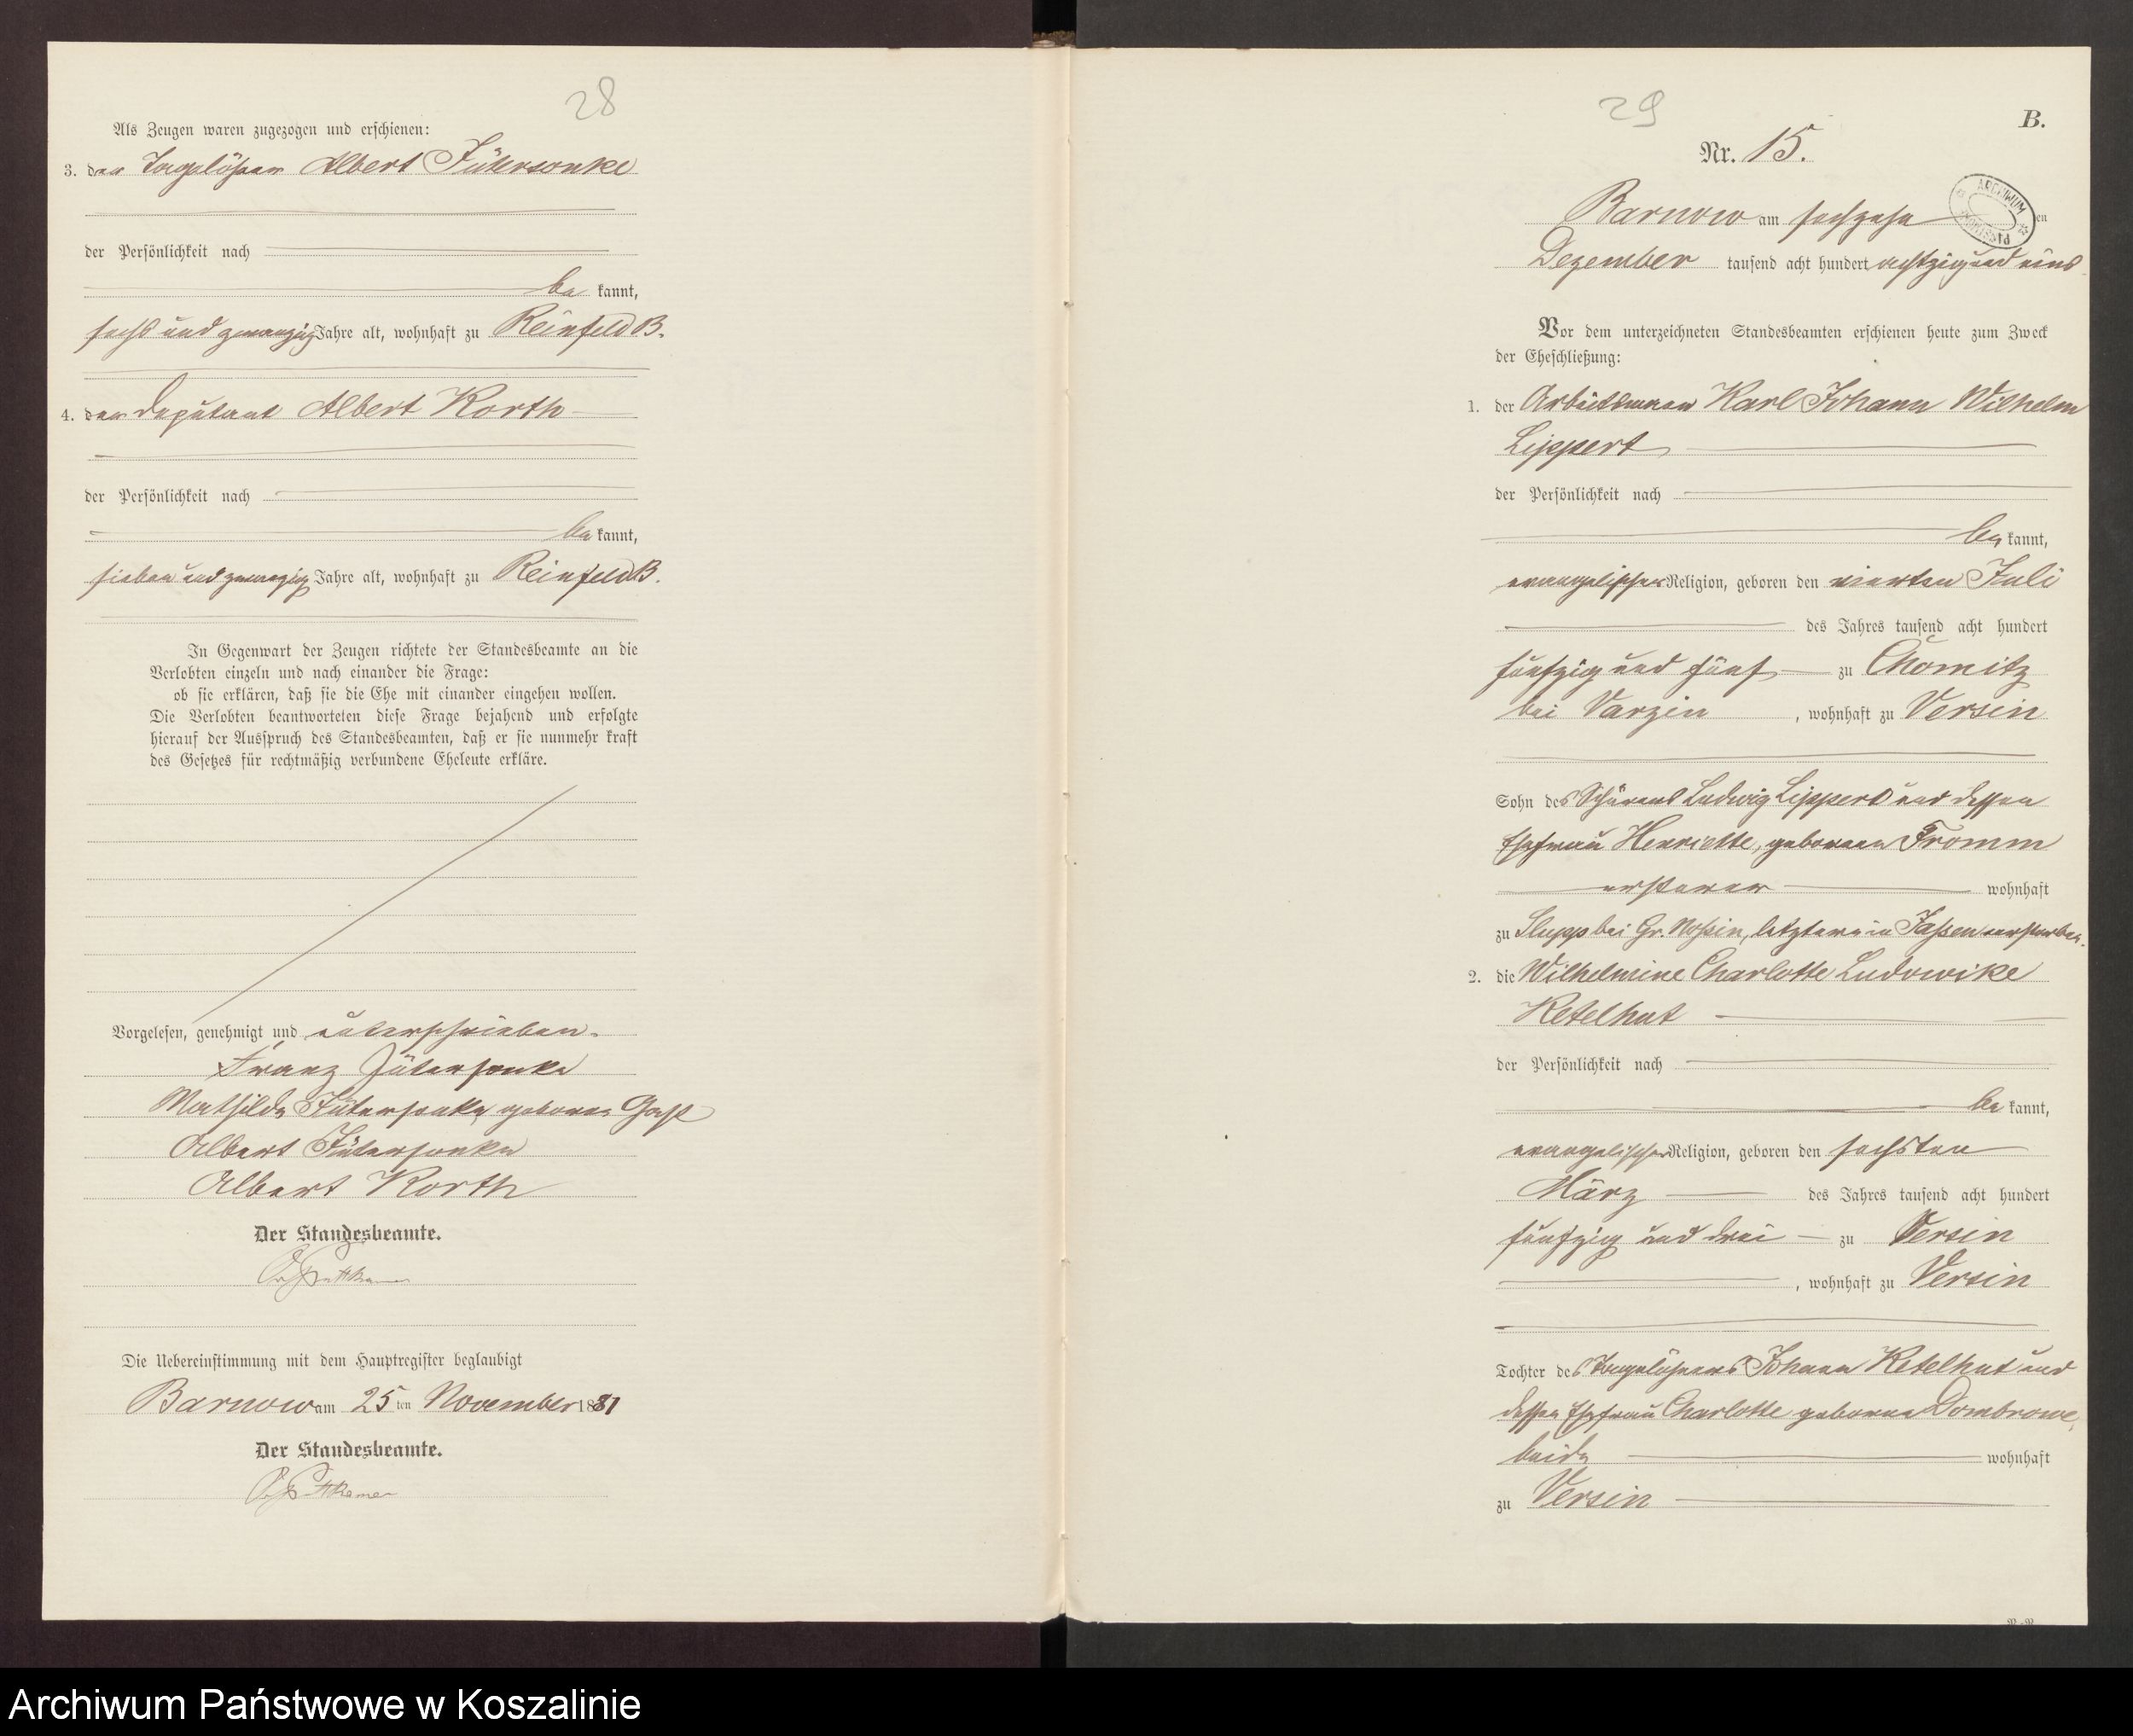 28
Als Zeugen waren zugezogen und erschienen:
3. der Tagelöhner Albert Jütersonke
der Persönlichkeit nach
be kannt,
sechs und zwanzig Jahre alt, wohnhaft zu Reinfeld B.
4. der Deputant Albert Korth
der Persönlichkeit nach
be kannt,
sieben und zwanzig Jahre alt, wohnhaft zu Reinfeld B.
In Gegenwart der Zeugen richtete der Standesbeamte an die
Verlobten einzeln und nach einander die Frage:
ob sie erklären, daß sie die Ehe mit einander eingehen wollen.
Die Verlobten beantworteten diese Frage bejahend und erfolgte
hierauf der Ausspruch des Standesbeamten, daß er sie nunmehr kraft
des Gesetzes für rechtmäßig verbundene Eheleute erkläre.
Vorgelesen, genehmigt und unterschrieben.
Franz Jütersonke
Mathilde Jütersonke geborne Gast
Albert Jütersonke
Albert Korth
Der Standesbeamte.
Puttkamer
Die Uebereinstimmung mit dem Hauptregister beglaubigt
Barnow am 25 ten November 1881
Der Standesbeamte.
Puttkamer
29
B.
Nr. 15.
ARCHIWUM PAŃSTWOWE
Barnow am sechzehn en
Dezember tausend acht hundert achtzig und eins
Vor dem unterzeichneten Standesbeamten erschienen heute zum Zweck
der Eheschließung:
1. der Arbeitsmann Karl Johann Wilhelm
Lippert
der Persönlichkeit nach
be kannt,
evangelischer Religion, geboren den vierten Juli
des Jahres tausend acht hundert
fünfzig und fünf zu Chomitz
bei Varzin, wohnhaft zu Versin
Sohn des Ludwig Lippert und dessen
Ehefrau Henriette, geborenen Fromm
ersterer wohnhaft
zu Slupp bei Gr. Nossin, letztere in Jassen verstorben.
2. die Wilhelmine Charlotte Ludowike
Ketelhut
der Persönlichkeit nach
be kannt,
evangelischer Religion, geboren den sechsten
März des Jahres tausend acht hundert
fünfzig und drei zu Versin
, wohnhaft zu Versin
Tochter des Tagelöhners Johann Ketelhut und
dessen Ehefrau Charlotte geborene Dombrowe,
beide wohnhaft
zu Versin
Archiwum Państwowe w Koszalinie